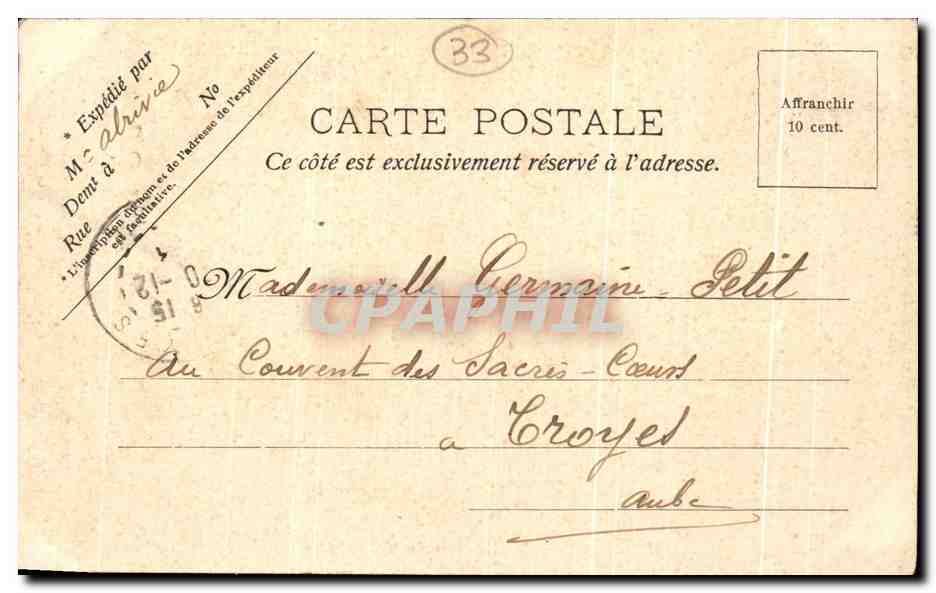 33
* Expédié par
M
Demt à
Rue
No
* L'inscription du nom et de l'adresse de l'expéditeur
est facultative.
CARTE POSTALE
Ce côté est exclusivement réservé à l'adresse.
Affranchir
10 cent.
Mademoiselle Germaine Petit
CPAPHIL
Au Couvent des Sacrés-Cœurs
a Troyes
Aube
15
-12